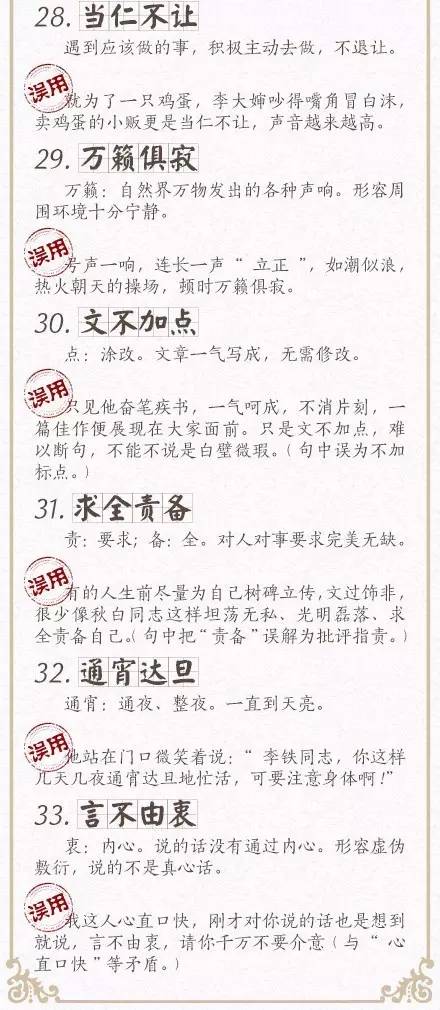 28. 当仁不让
遇到应该做的事，积极主动去做，不退让。
误用
就为了一只鸡蛋，李大婶吵得嘴角冒白沫，
卖鸡蛋的小贩更是当仁不让，声音越来越高。
29. 万籁俱寂
万籁：自然界万物发出的各种声响。形容周
围环境十分宁静。
误用
号声一响，连长一声“立正”，如潮似浪，
热火朝天的操场，顿时万籁俱寂。
30. 文不加点
点：涂改。文章一气写成，无需修改。
误用
只见他奋笔疾书，一气呵成，不消片刻，一
篇佳作便展现在大家面前。只是文不加点，难
以断句，不能不说是白壁微瑕。（句中误为不加
标点。）
31. 求全责备
责：要求；备：全。对人对事要求完美无缺。
误用
有的人生前尽量为自己树碑立传，文过饰非，
很少像秋白同志这样坦荡无私、光明磊落、求
全责备自己。（句中把“责备”误解为批评指责。）
32. 通宵达旦
通宵：通夜、整夜。一直到天亮。
误用
他站在门口微笑着说：“李铁同志，你这样
几天几夜通宵达旦地忙活，可要注意身体啊！”
33. 言不由衷
衷：内心。说的话没有通过内心。形容虚伪
敷衍，说的不是真心话。
误用
我这人心直口快，刚才对你说的话也是想到
就说，言不由衷，请你千万不要介意（与“心
直口快”等矛盾。）